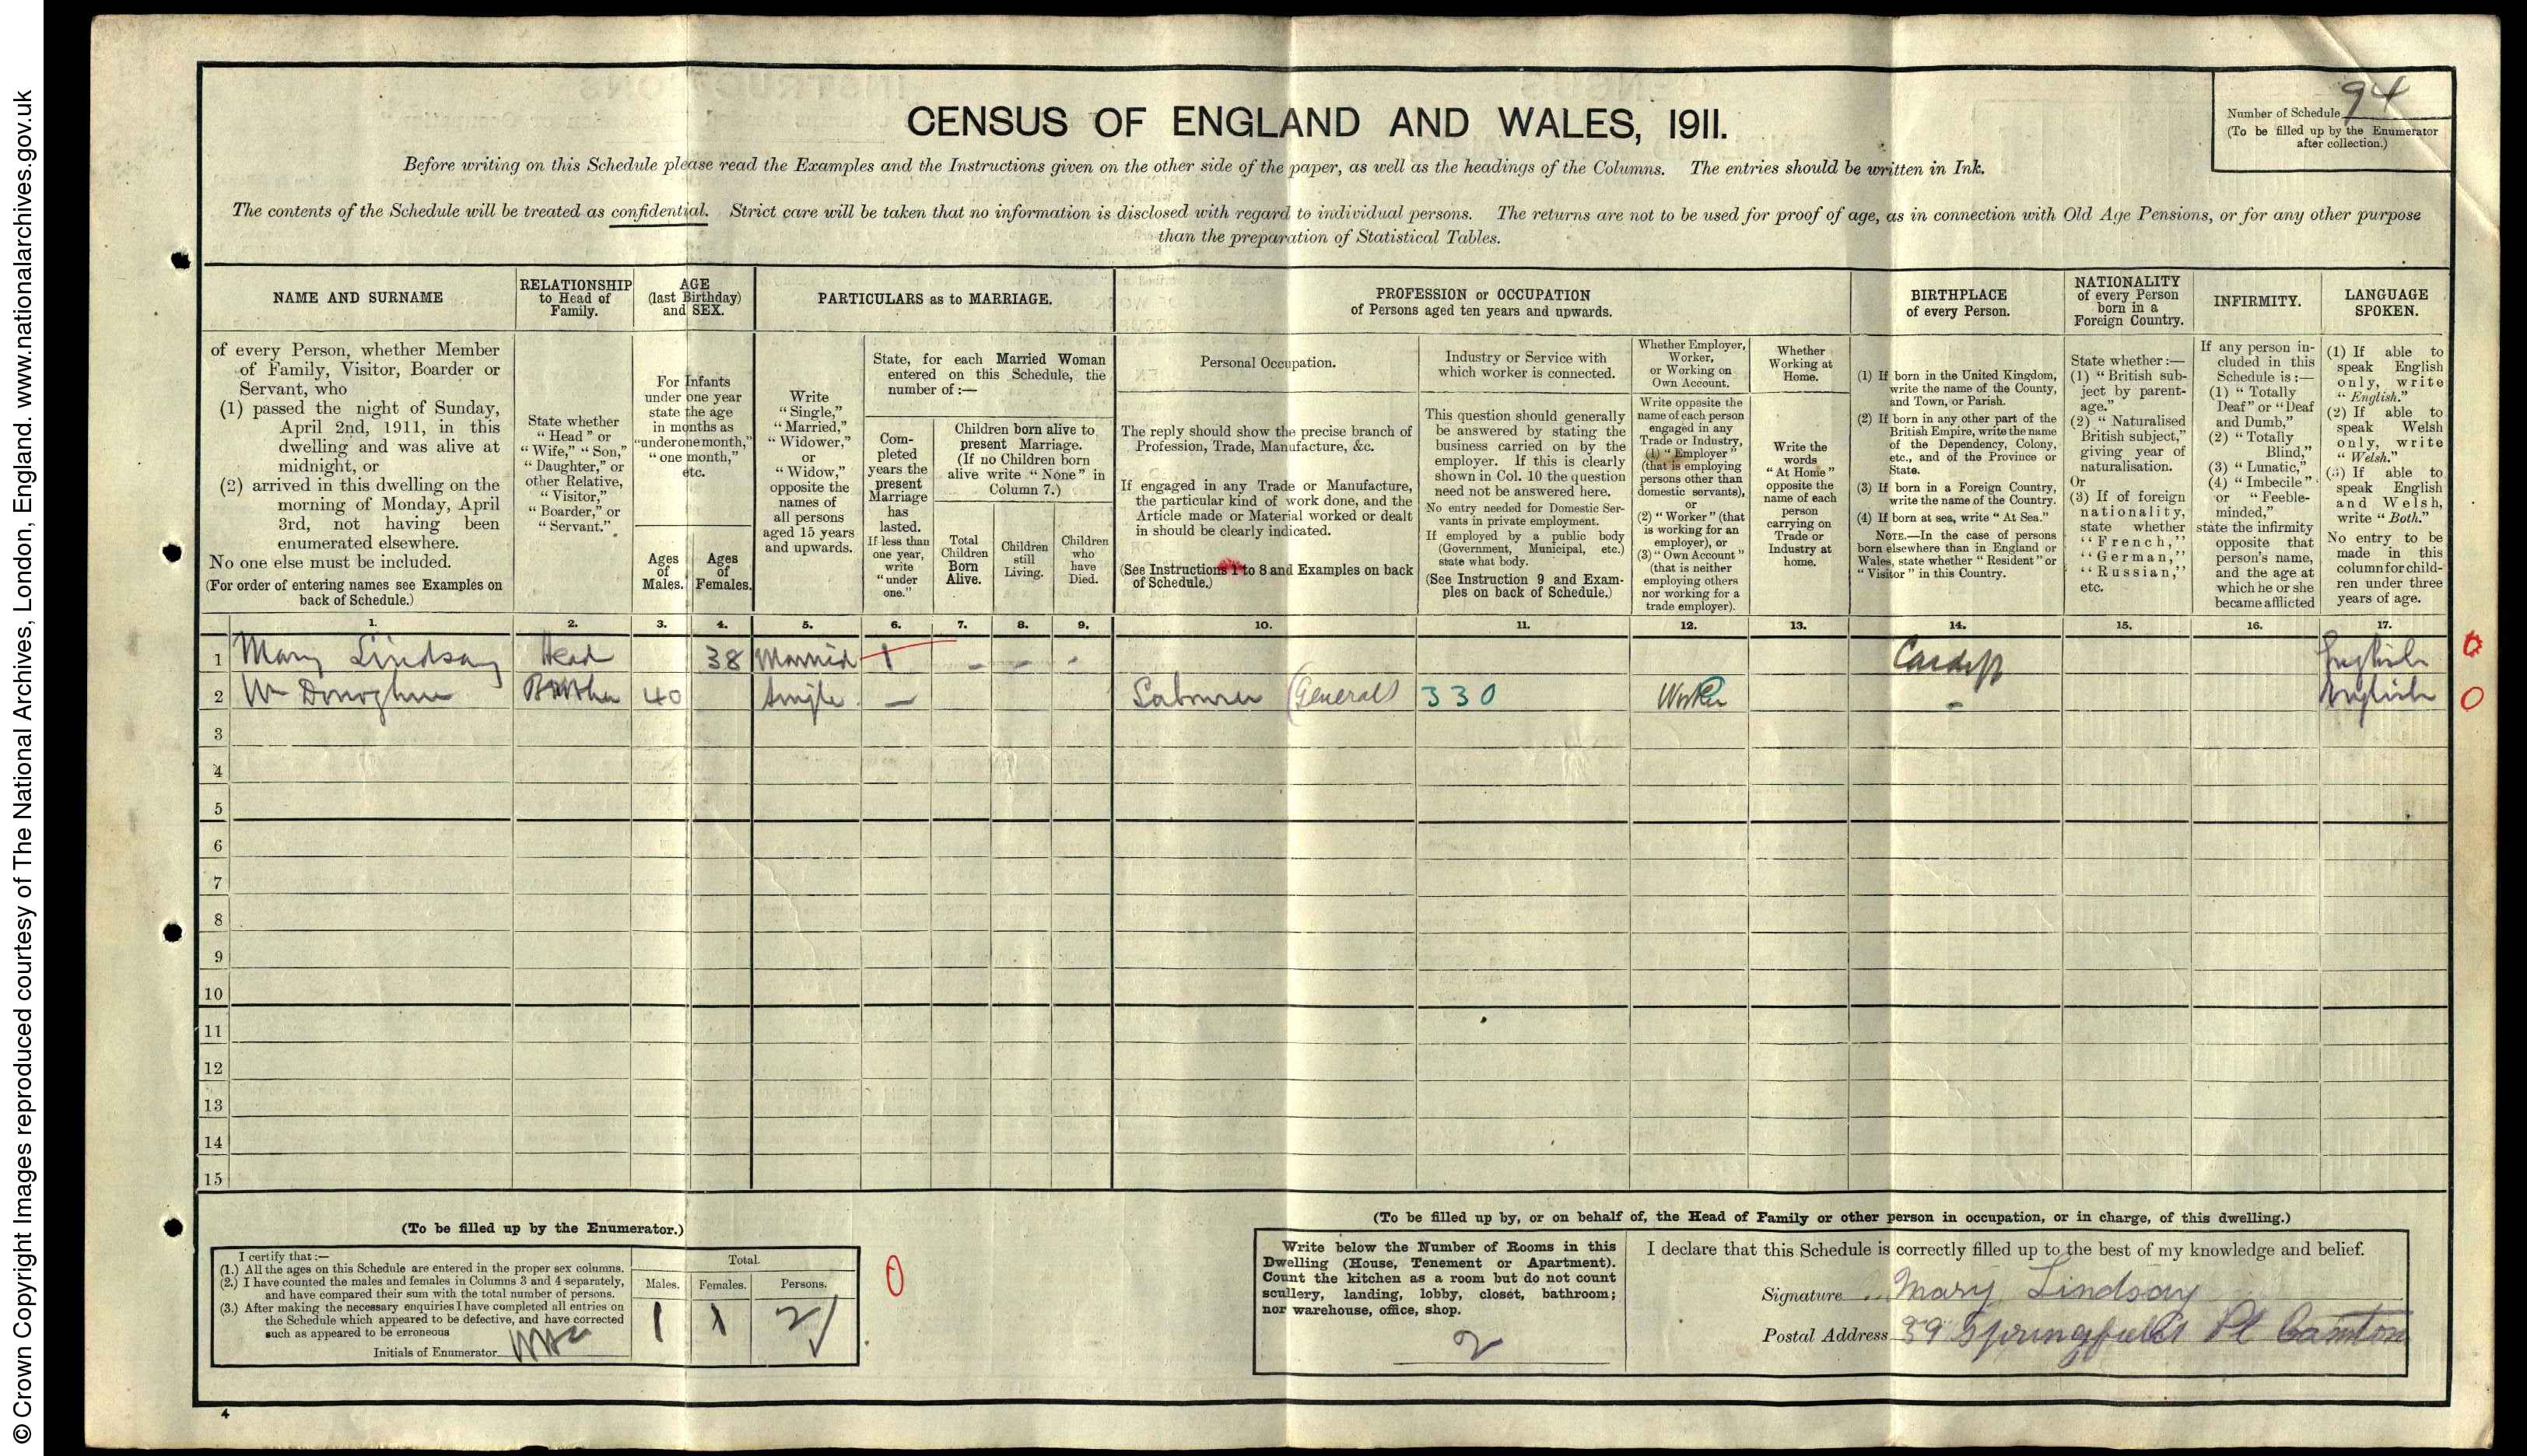 © Crown Copyright Images reproduced courtesy of The National Archives, London, England. www.nationalarchives.gov.uk
CENSUS OF ENGLAND AND WALES, 1911.
Number of Schedule 94
(To be filled up by the Enumerator
after collection.)
Before writing on this Schedule please read the Examples and the Instructions given on the other side of the paper, as well as the headings of the Columns. The entries should be written in Ink.
The contents of the Schedule will be treated as confidential. Strict care will be taken that no information is disclosed with regard to individual persons. The returns are not to be used for proof of age, as in connection with Old Age Pensions, or for any other purpose
than the preparation of Statistical Tables.
NAME AND SURNAME
of every Person, whether Member
of Family, Visitor, Boarder or
Servant, who
(1) passed the night of Sunday,
April 2nd, 1911, in this
dwelling and was alive at
midnight, or
(2) arrived in this dwelling on the
morning of Monday, April
3rd, not having been
enumerated elsewhere.
No one else must be included.
(For order of entering names see Examples on
back of Schedule.)
RELATIONSHIP
to Head of
Family.
State whether
"Head" or
"Wife," "Son,"
"Daughter," or
other Relative,
"Visitor,"
"Boarder," or
"Servant."
AGE
(last Birthday)
and SEX.
For Infants
under one year
state the age
in months as
"under one month,"
"one month,"
etc.
Ages
of
Males.
Ages
of
Females.
PARTICULARS as to MARRIAGE.
Write
"Single,"
"Married,"
"Widower,"
or
"Widow,"
opposite the
names of
all persons
aged 15 years
and upwards.
State, for each Married Woman
entered on this Schedule, the
number of :—
Com-
pleted
years the
present
Marriage
has
lasted.
If less than
one year,
write
"under
one."
Children born alive to
present Marriage.
(If no Children born
alive write "None" in
Column 7.)
Total
Children
Born
Alive.
Children
still
Living.
Children
who
have
Died.
PROFESSION or OCCUPATION
of Persons aged ten years and upwards.
Personal Occupation.
The reply should show the precise branch of
Profession, Trade, Manufacture, &c.
If engaged in any Trade or Manufacture,
the particular kind of work done, and the
Article made or Material worked or dealt
in should be clearly indicated.
(See Instructions 1 to 8 and Examples on back
of Schedule.)
Industry or Service with
which worker is connected.
This question should generally
be answered by stating the
business carried on by the
employer. If this is clearly
shown in Col. 10 the question
need not be answered here.
No entry needed for Domestic Ser-
vants in private employment.
If employed by a public body
(Government, Municipal, etc.)
state what body.
(See Instruction 9 and Exam-
ples on back of Schedule.)
Whether Employer,
Worker,
or Working on
Own Account.
Write opposite the
name of each person
engaged in any
Trade or Industry,
(1) "Employer"
(that is employing
persons other than
domestic servants),
or
(2) "Worker" (that
is working for an
employer), or
(3) "Own Account"
(that is neither
employing others
nor working for a
trade employer).
Whether
Working at
Home.
Write the
words
"At Home"
opposite the
name of each
person
carrying on
Trade or
Industry at
home.
BIRTHPLACE
of every Person.
(1) If born in the United Kingdom,
write the name of the County,
and Town, or Parish.
(2) If born in any other part of the
British Empire, write the name
of the Dependency, Colony,
etc., and of the Province or
State.
(3) If born in a Foreign Country,
write the name of the Country.
(4) If born at sea, write "At Sea."
NOTE.—In the case of persons
born elsewhere than in England or
Wales, state whether "Resident" or
"Visitor" in this Country.
NATIONALITY
of every Person
born in a
Foreign Country.
State whether :—
(1) "British sub-
ject by parent-
age."
(2) "Naturalised
British subject,"
giving year of
naturalisation.
Or
(3) If of foreign
nationality,
state whether
"French,"
"German,"
"Russian,"
etc.
INFIRMITY.
If any person in-
cluded in this
Schedule is :—
(1) "Totally
Deaf" or "Deaf
and Dumb,"
(2) "Totally
Blind,"
(3) "Lunatic,"
(4) "Imbecile"
or "Feeble-
minded,"
state the infirmity
opposite that
person's name,
and the age at
which he or she
became afflicted
LANGUAGE
SPOKEN.
(1) If able to
speak English
only, write
"English."
(2) If able to
speak Welsh
only, write
"Welsh."
(3) If able to
speak English
and Welsh,
write "Both."
No entry to be
made in this
column for child-
ren under three
years of age.
1. 2. 3. 4. 5. 6. 7. 8. 9. 10. 11. 12. 13. 14. 15. 16. 17.
1 Mary Lindsay Head 38 Married 1 – – – Cardiff English 0
2 Wm Donoghue Brother 40 Single — Labourer (General) 330 Worker – English 0
3
4
5
6
7
8
9
10
11
12
13
14
15
(To be filled up by the Enumerator.)
I certify that :—
(1.) All the ages on this Schedule are entered in the proper sex columns.
(2.) I have counted the males and females in Columns 3 and 4 separately,
and have compared their sum with the total number of persons.
(3.) After making the necessary enquiries I have completed all entries on
the Schedule which appeared to be defective, and have corrected
such as appeared to be erroneous
Initials of Enumerator
Total.
Males. Females. Persons.
1 1 2
0
(To be filled up by, or on behalf of, the Head of Family or other person in occupation, or in charge, of this dwelling.)
Write below the Number of Rooms in this
Dwelling (House, Tenement or Apartment).
Count the kitchen as a room but do not count
scullery, landing, lobby, closet, bathroom;
nor warehouse, office, shop.
2
I declare that this Schedule is correctly filled up to the best of my knowledge and belief.
Signature Mary Lindsay
Postal Address 39 Springfield Pl Canton
4